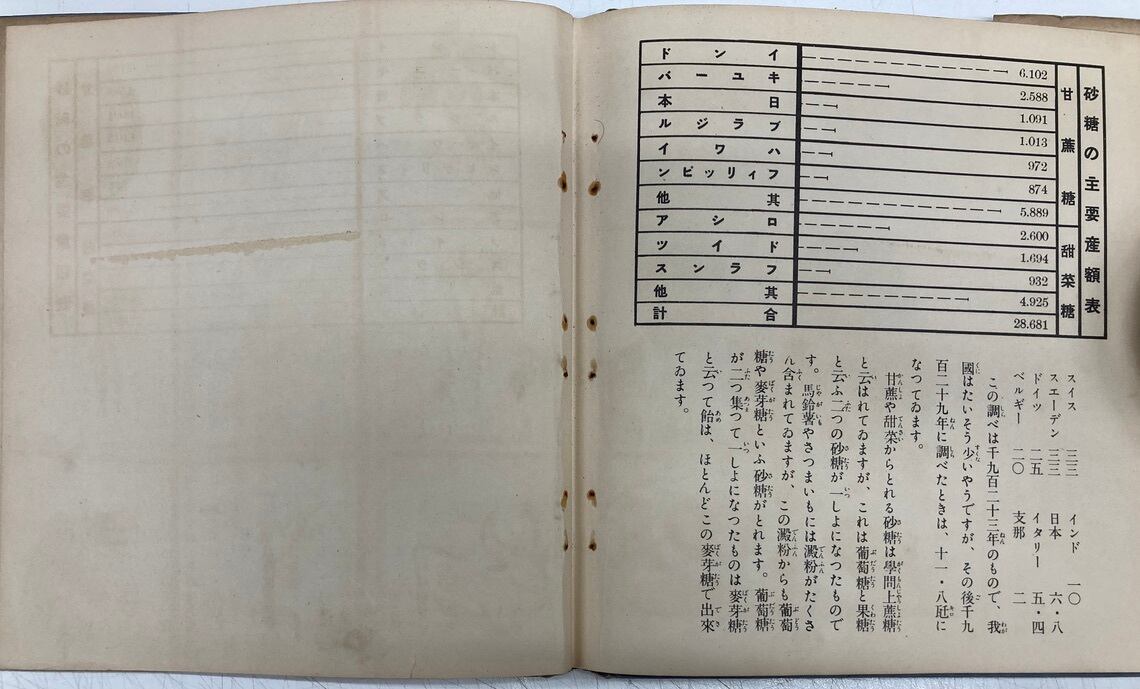 砂糖の主要産額表
甘蔗糖
インド 6.102
キユーバ 2.588
日本 1.091
ブラジル 1.013
ハワイ 972
フィリッピン 874
其他 5.889
甜菜糖
ロシア 2.600
ドイツ 1.694
フランス 932
其他 4.925
合計 28.681
スイス 三三 インド 一〇
スエーデン 三三 日本 六・八
ドイツ 二五 イタリー 五・四
ベルギー 二〇 支那 二
この調べは千九百二十三年のもので、我
國はたいそう少いやうですが、その後千九
百二十九年に調べたときは、十一・八瓩に
なつてゐます。
甘蔗や甜菜からとれる砂糖は學問上蔗糖
と云はれてゐますが、これは葡萄糖と果糖
と云ふ二つの砂糖が一しよになつたもので
す。馬鈴薯やさつまいもには澱粉がたくさ
ん含まれてゐますが、この澱粉からも葡萄
糖や麥芽糖といふ砂糖がとれます。葡萄糖
が二つ集つて一しよになつたものは麥芽糖
と云つて飴は、ほとんどこの麥芽糖で出來
てゐます。